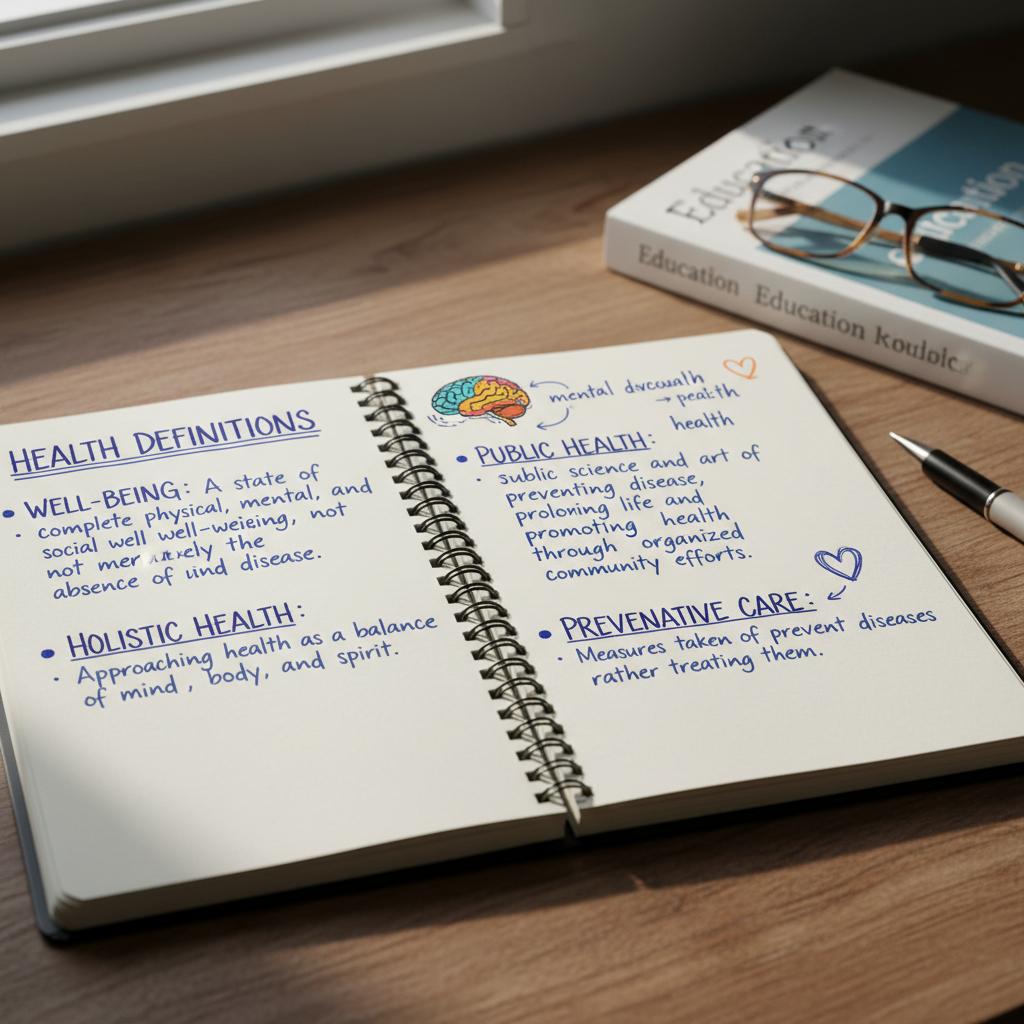 HEALTH DEFINITIONS
• WELL-BEING: A state of
· complete physical, mental, and
social well well-weieing, not
not mer the
absence of disease.
• HOLISTIC HEALTH:
· Approaching health as a balance
of mind , body, and spirit.
mental
→ pealth
health
• PUBLIC HEALTH:
· sublic science and art of
preventing disease,
proloning life and
promoting health
through organized
community efforts.
• PREVENATIVE CARE:
· Measures taken of prevent diseases
rather treating them.
Education
Education Education